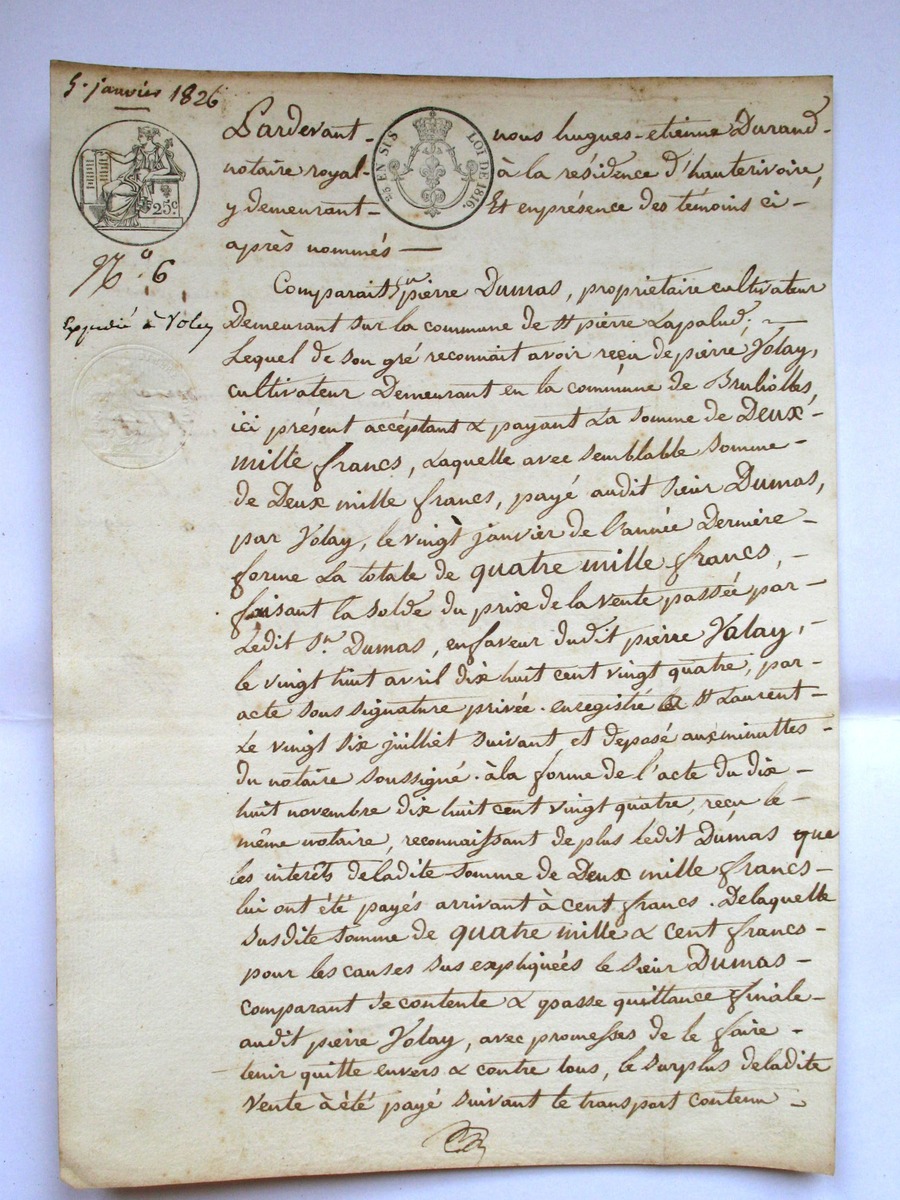 5. janvier 1826
25c.
25 EN SUS
LOI DE 1816.
N.o 6
Expedié à Volay
Pardevant - nous hugues-etienne Durand -
notaire royal - à la résidence d'hauterivoire,
y demeurant - Et enprésence des témoins ci -
après nommés —
Comparait Sr. pierre Dumas, propriétaire cultivateur
Demeurant sur la commune de St pierre Lapalud; —
Lequel de son gré reconnait avoir reçu de pierre Volay,
cultivateur Demeurant en la commune de Bruliolles,
ici présent accéptant & payant La somme de Deux -
mille francs, Laquelle avec semblable somme -
de Deux mille francs, payé audit sieur Dumas,
par Volay, le vingt janvier de l'année Dernière -
forme La totale de quatre mille francs, -
faisant la solde du prix de la vente passée par -
Ledit Sr. Dumas, en faveur dudit pierre Valay, -
le vingt huit avril dix huit cent vingt quatre, par -
acte sous signature privée. enregistré à St Laurent -
Le vingt six juilliet suivant, et deposé aux minuttes -
du notaire soussigné. à la forme de l'acte du dix -
huit novembre dix huit cent vingt quatre, reçu le -
même notaire, reconnaissant de plus ledit Dumas que
les interêts deladite somme de Deux mille francs -
lui ont été payés arrivant à cent francs. Delaquelle
susdite somme de quatre mille & cent francs -
pour les causes sus expliquées le sieur Dumas -
comparant se contente & passe quittance finale -
audit pierre Volay, avec promesses de le faire -
tenir quitte envers & contre tous, le surplus deladite
vente à été payé suivant le transport contenu -